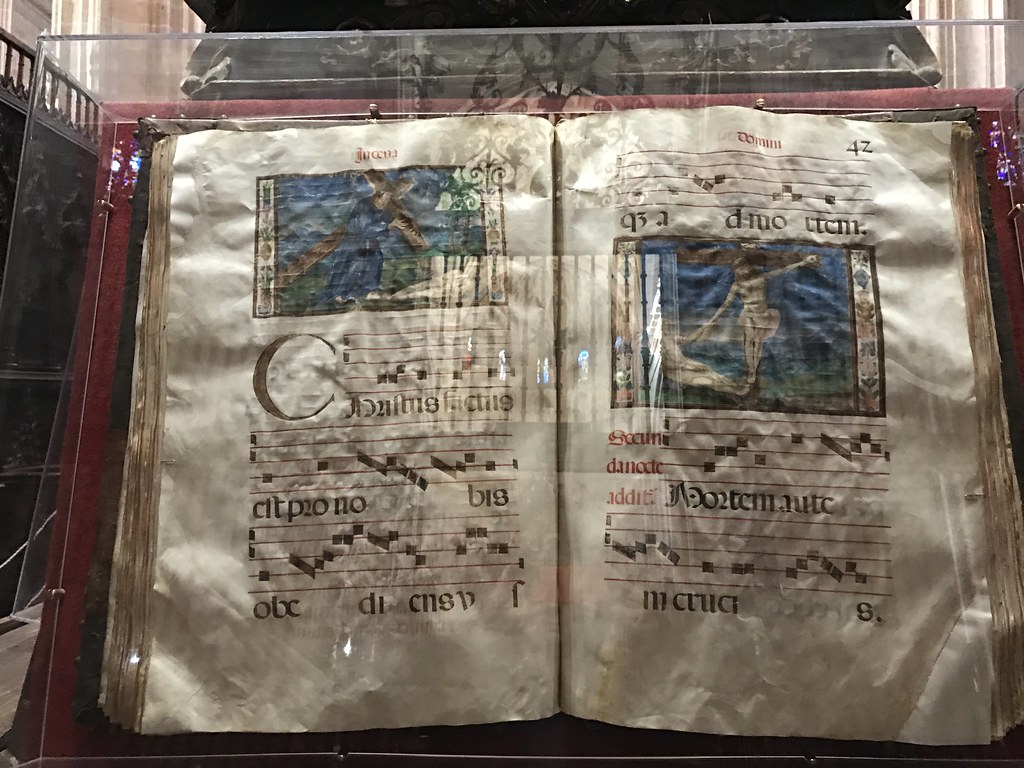 In cena
Christus factus
est pro no bis
obe di ens v s
Domini
42
qz a d mo rtem.
Secun
da nocte
addit̃
Mortem aute
m cruci s.